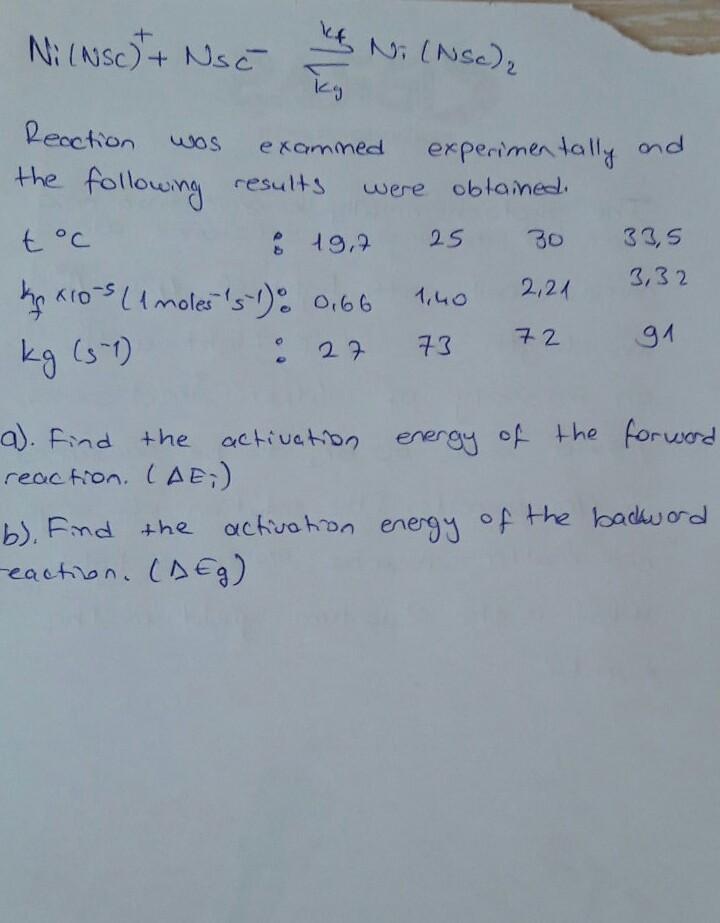 Ni(NSC)⁺ + NSC⁻ ⇌ Ni(NSC)₂
kf
kg
Reaction was exammed experimentally and
the following results were obtained.
t °C : 19,7 25 30 33,5
kf x10⁻⁵ (1 moles⁻¹s⁻¹): 0,66 1,40 2,21 3,32
kg (s⁻¹) : 27 73 72 91
a). Find the activation energy of the forword
reaction. (ΔEi)
b). Find the activation energy of the backword
reaction. (ΔEg)